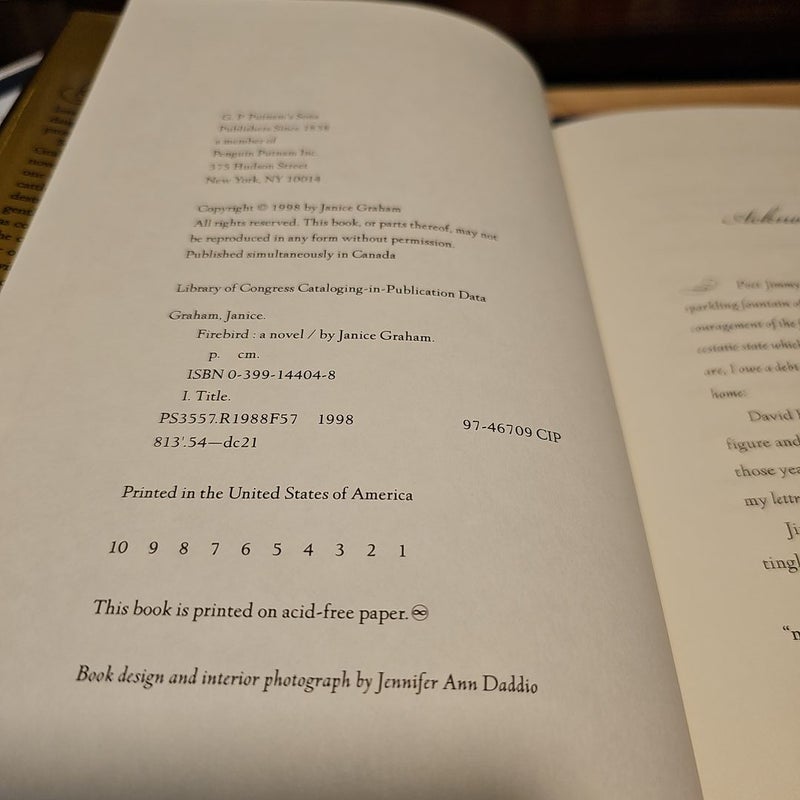 G. P. Putnam's Sons
Publishers Since 1838
a member of
Penguin Putnam Inc.
375 Hudson Street
New York, NY 10014
Copyright © 1998 by Janice Graham
All rights reserved. This book, or parts thereof, may not
be reproduced in any form without permission.
Published simultaneously in Canada
Library of Congress Cataloging-in-Publication Data
Graham, Janice.
Firebird : a novel / by Janice Graham.
p. cm.
ISBN 0-399-14404-8
I. Title.
PS3557.R1988F57 1998 97-46709 CIP
813'.54—dc21
Printed in the United States of America
10 9 8 7 6 5 4 3 2 1
This book is printed on acid-free paper. ♾
Book design and interior photograph by Jennifer Ann Daddio
Poet Jimmy
sparkling fountain
couragement of the
ecstatic state which
are, I owe a debt
home:
David
figure and
those
my